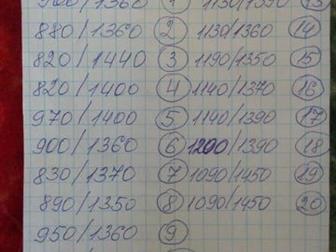 900/1360 ① 1130/1390 13
880/1360 ② 1130/1360 ⑭
820/1440 ③ 1190/1350 ⑮
820/1400 ④ 1140/1370 ⑯
970/1400 ⑤ 1140/1390 ⑰
900/1360 ⑥ 1200/1390 ⑱
830/1370 ⑦ 1090/1450 ⑲
890/1350 ⑧ 1090/1450 ⑳
950/1360 ⑨